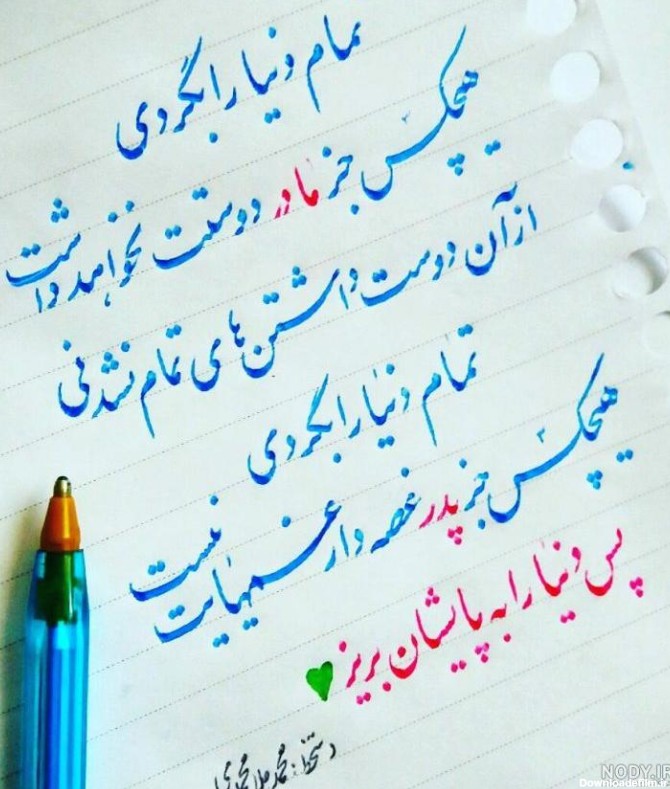 تمام دنیا را بگردی
هیچکس جز مادر دوستت نخواهد داشت
از آن دوست داشتن های تمام نشدنی
تمام دنیا را بگردی
هیچکس جز پدر غصه دار غمهایت نیست
پس دنیا را به پایشان بریز
دستخط: محمد ملامحمدی
NODY.IR
Downloadefilm.ir